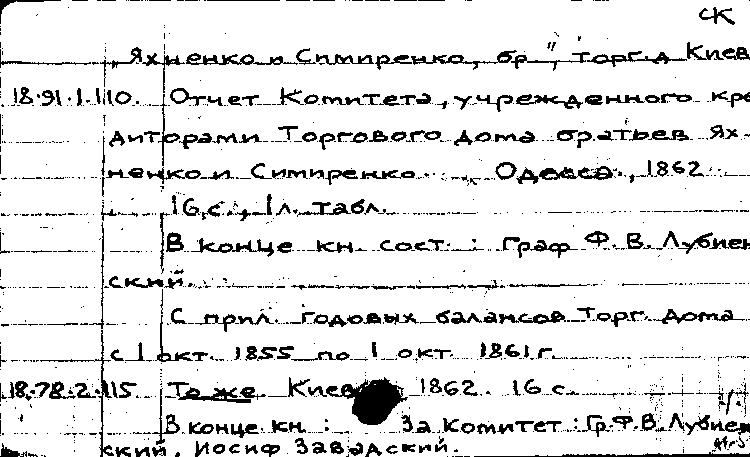 СК
„Яхненко и Симиренко, бр", торг. д Киев
18.91.1.110. Отчет Комитета, учрежденного кре
диторами Торгового дома братьев Ях-
ненко и Симиренко ... Одесса, 1862.
16 с., 1 л. табл.
В конце кн. сост.: граф Ф.В. Лубиен
ский.
С прил. годовых балансов Торг. дома
с 1 окт. 1855 по 1 окт. 1861 г.
18.78.2.115. То же. Киев 1862. 16 с.
В конце кн.: За Комитет: Гр. Ф.В. Лубиен
ский, Иосиф Завадский.